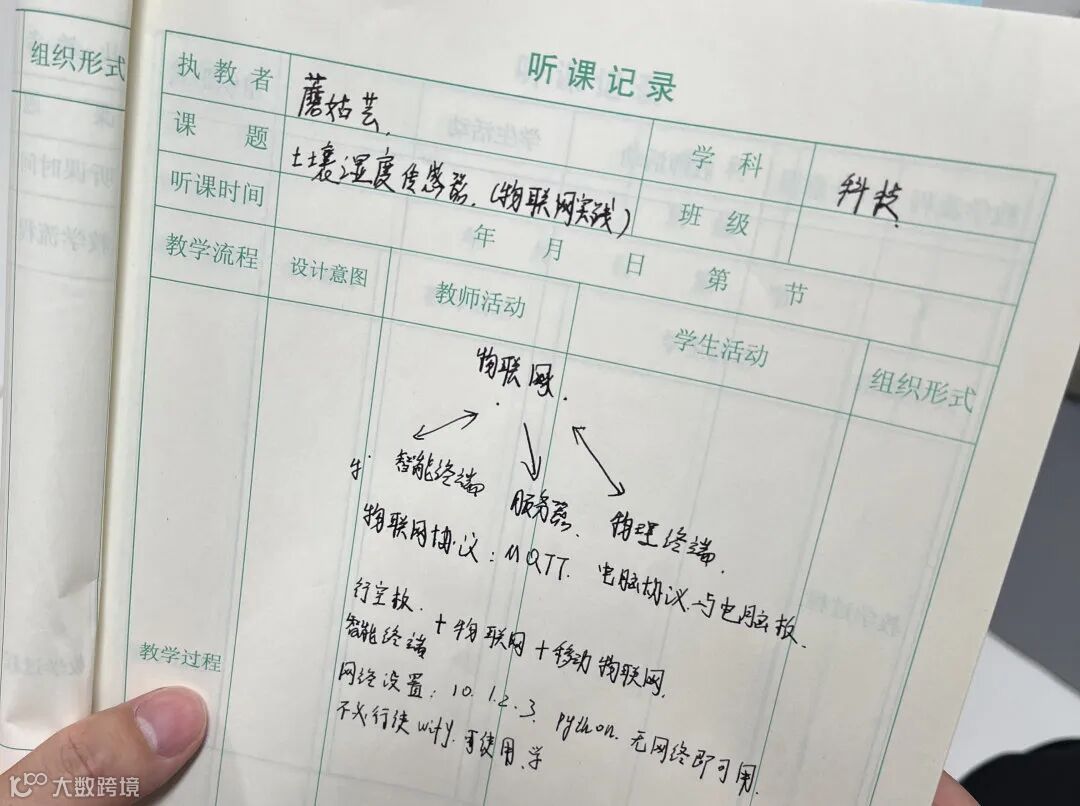 组织形式
听课记录
执教者
蘑菇芸.
学科
科技
课题
土壤湿度传感器.(物联网实践)
班级
听课时间
年 月 日 第 节
教学流程
设计意图
教师活动
学生活动
组织形式
物联网.
智能终端
服务器.
物理终端.
物联网协议:MQTT. 电脑协议.与电脑板.
行空板.
智能终端 + 物联网 + 移动物联网.
网络设置:10.1.2.3. python. 无网络即可用.
wify.可使用.学
教学过程
大数跨境